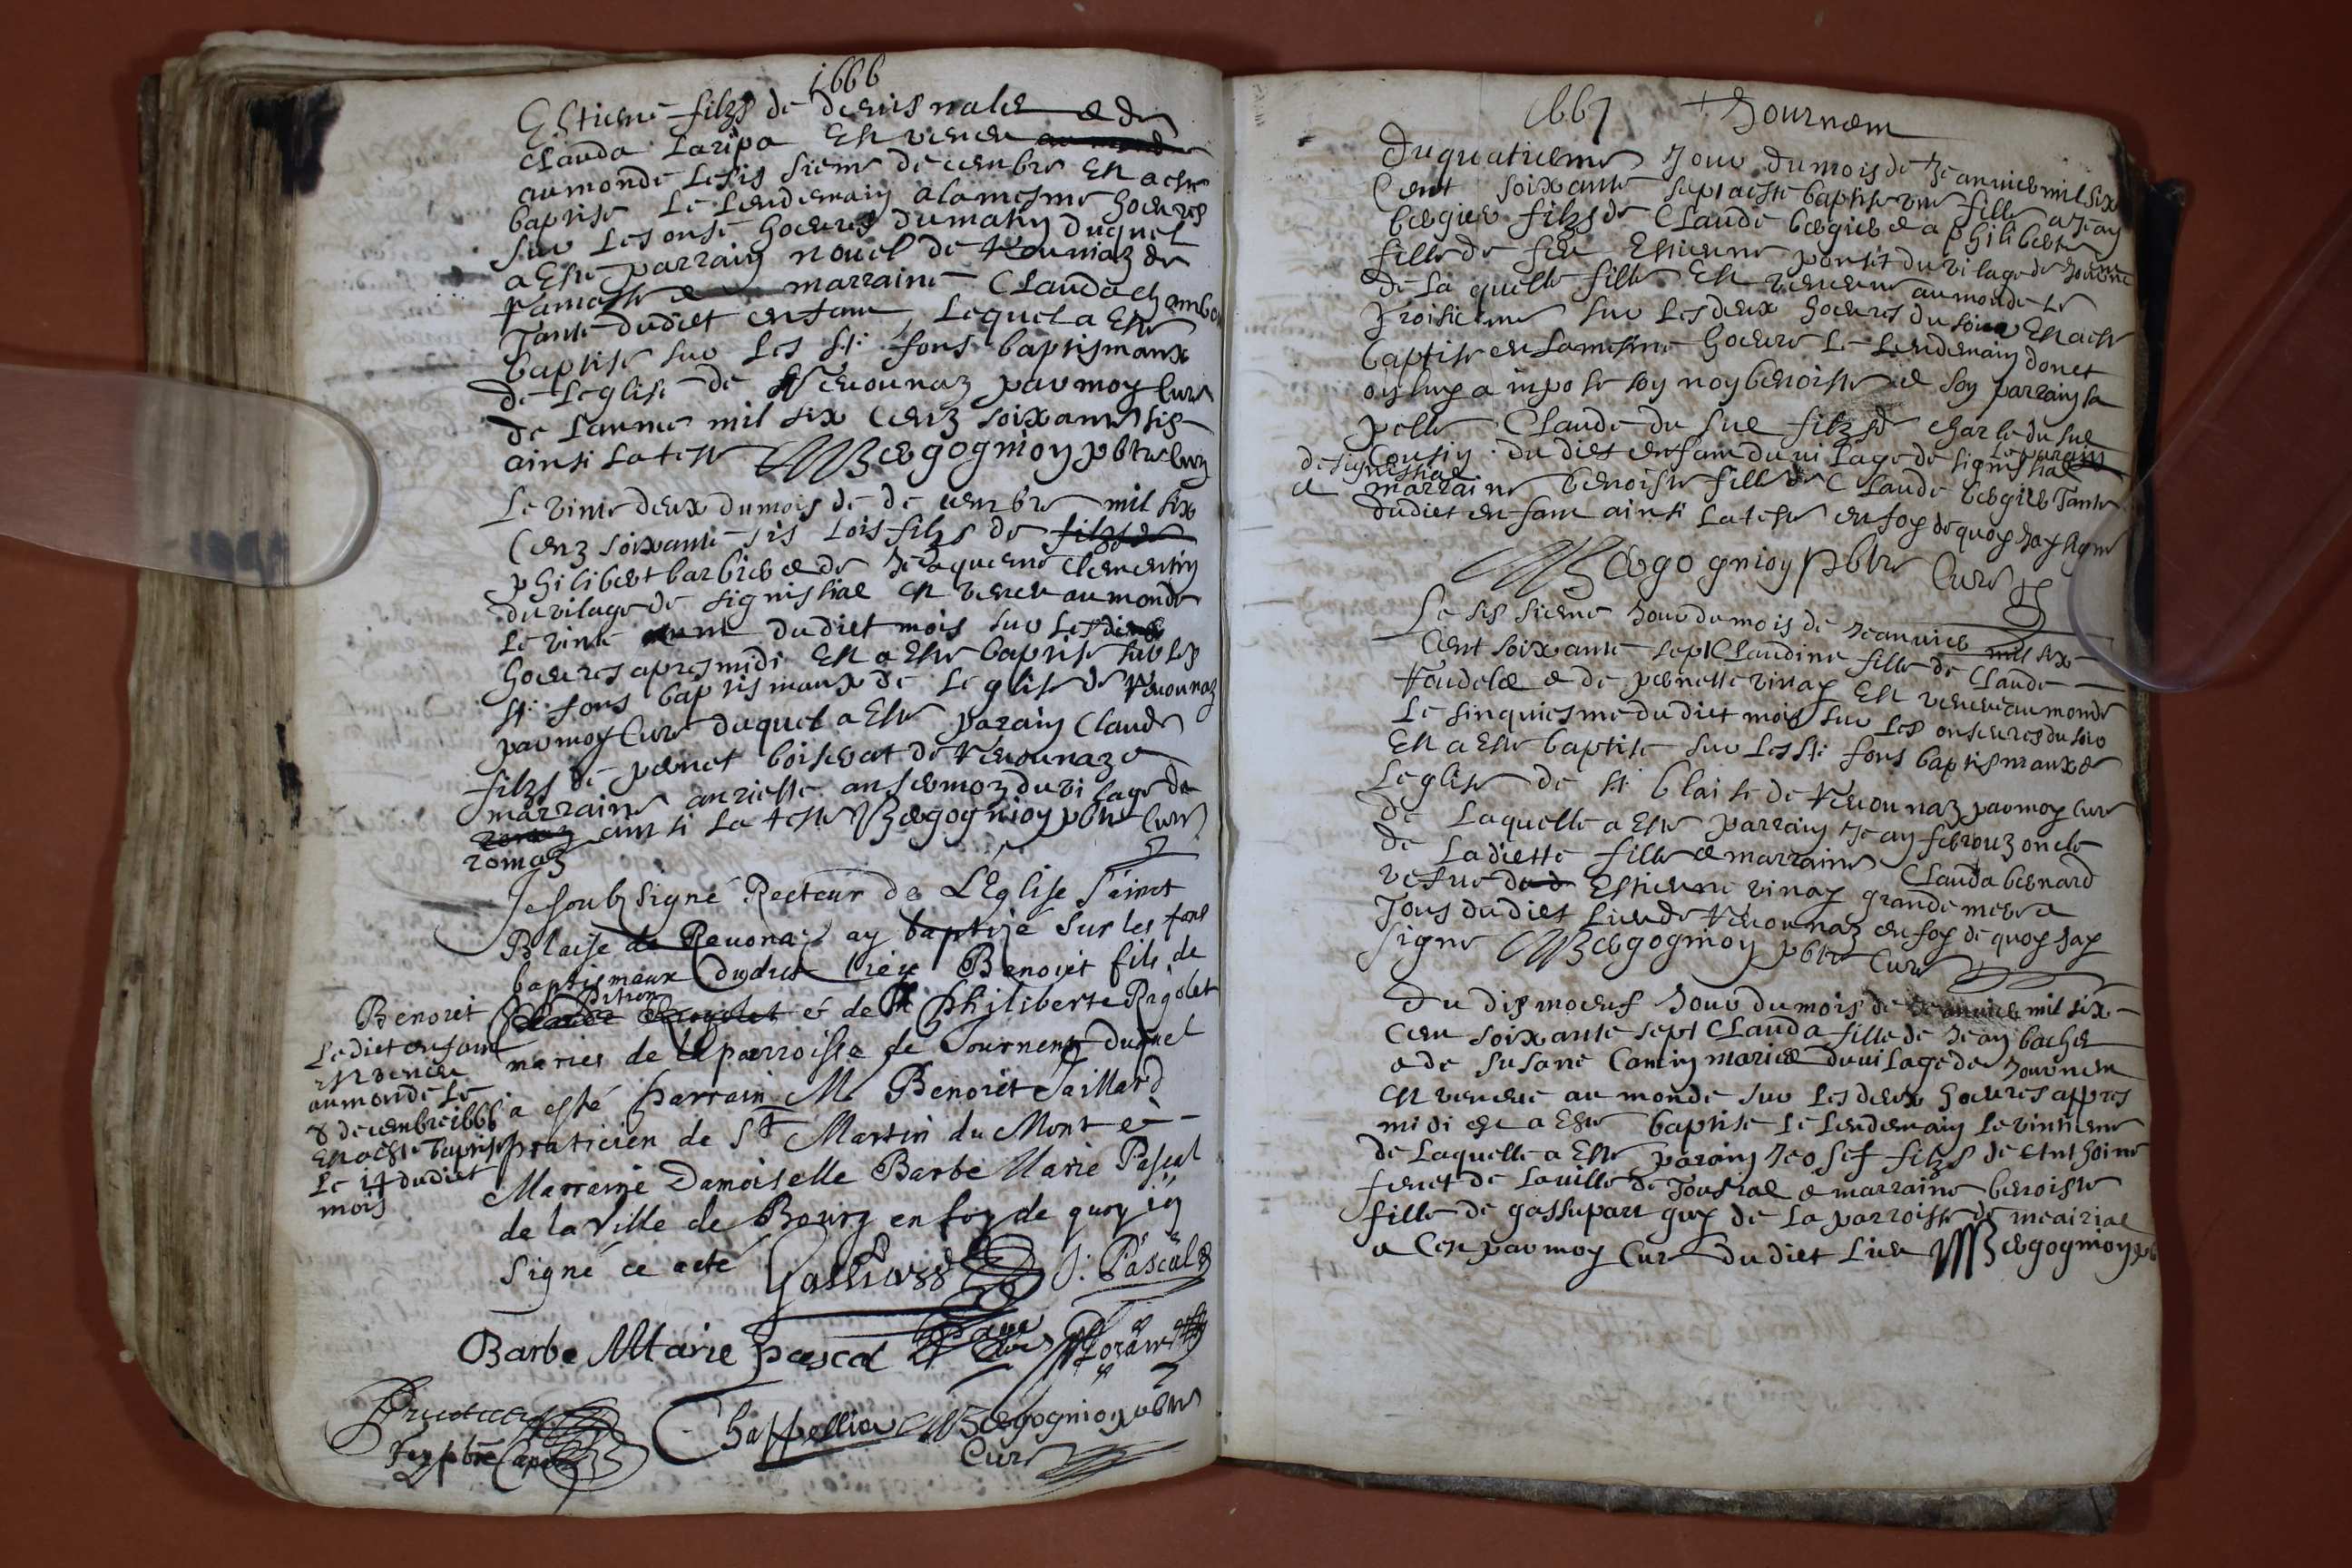 1666
Estiene filzs de denis nalet & de
Clauda Laripa est veneu au monde
au monde le sis sieme decembre est a este
baptise le lendemain a la mesme hoeures
sur les onse hoeures du matin duquel
a este parrain nouel de
& marraine Clauda chambo
Tante dudict enfant, Lequel a este
baptise sur les St. fons baptismaux
de Leglise de Reuounaz par moy Cure
de Lannee mil six Cenz soixante sis
ainsi Lateste Bergognion pbtre Cure
Le vinte deux du mois de decembre mil six
Cenz soixante sis Lois filzs de filzs de
philibert barbier & de Jeaqueme Clementin
du vilage de signissiae est veneu au monde
Le vinte une dudict mois sur les dix
hoeures apres midi est a este baptise sur les
St. fons baptismaux de Leglise de Reuounaz
par moy Cure duquel a este parain Claude
filzs de pernet boiserat de Reuounaz &
marraine anriette ansermoz du vilage de
romaz ainsi Lateste Bergognion pbtre Cure
romaz
Je soubsigné Recteur de L'Eglise Sainct
Blaise de Reuonaz ay baptizé sur les fons
baptismaux dudict lieu Benoict fils de
pitron
Claude Ragolet & de Philiberte Ragolet
mariez de la parroisse de Journens duquel
a esté parrain Me Benoict Gaillard
praticien de St Martin du Mont &
Marraine Damoiselle Barbe Marie Pascal
de la Ville de Bourg en foy de quoy jay
signé ce acte Galliard J. Pascal
Benoict
Le dict enfant
est veneu
au monde Le
8 decembre 1666
est a este baptise
Le 14 dudict
mois
Barbe Marie pascal
Chappellion Bergognion pbtre
Cure
1667 + Journem
Du quatrieme Jour du mois de Jeanvier mil six
Cent soixante sept a este baptise une fille a Jean
bergier filzs de Claude bergier & a philiberte
fille de feu Estienne ponsit du vilage de Journem
de La quelle fille est veneue au monde le
troisieme sur les deux hoeures du soir est a este
baptise en La mesme hoeure Le Lendemain donet
on luy a impose son non benoiste & son parrain sa
pelle Claude du sue filzs de charle du sue
Cousin du dict enfant du vilage de signissiae Le parain
de signissiae
& marraine benoiste fille de Claude bergier Tante
dudict enfant ainsi Lateste en foy de quoy Jay signe
Bergognion Pbtre Cure
Le sis sieme Jour du mois de Jeanvier mil six
Cent soixante sept Claudine fille de Claude
& de pernette vinay est veneue au monde
Le sinquiesme dudict mois sur les onseures du soir
est a este baptise sur les St. fons baptismaux de
Leglise de St blaise de Reuounaz par moy Cure
de Laquelle a este parrain Jean febrouz oncle
de Ladiette fille & marraine Clauda bernard
vefue de Estienne vinay grande mere &
Tous dudict Lieu de Reuounaz en foy de quoy Jay
signe Bergognion pbtre Cure
Du dis noeuf Jour du mois de Jeanvier mil six
Cent soixante sept Clauda fille de Jean bachet
& de Susane Contin maries du vilage de Journem
est veneue au monde sur les deux hoeures apres
midi et a este baptise Le Lendemain Le vintieme
de Laquelle a este parain Joosef filzs de Anthoine
fenet de La ville de Tossiae & marraine benoiste
fille de gassupart guy de La parroisse de meairiae
& Cen par moy Cure du dict Lieu Bergognion pb